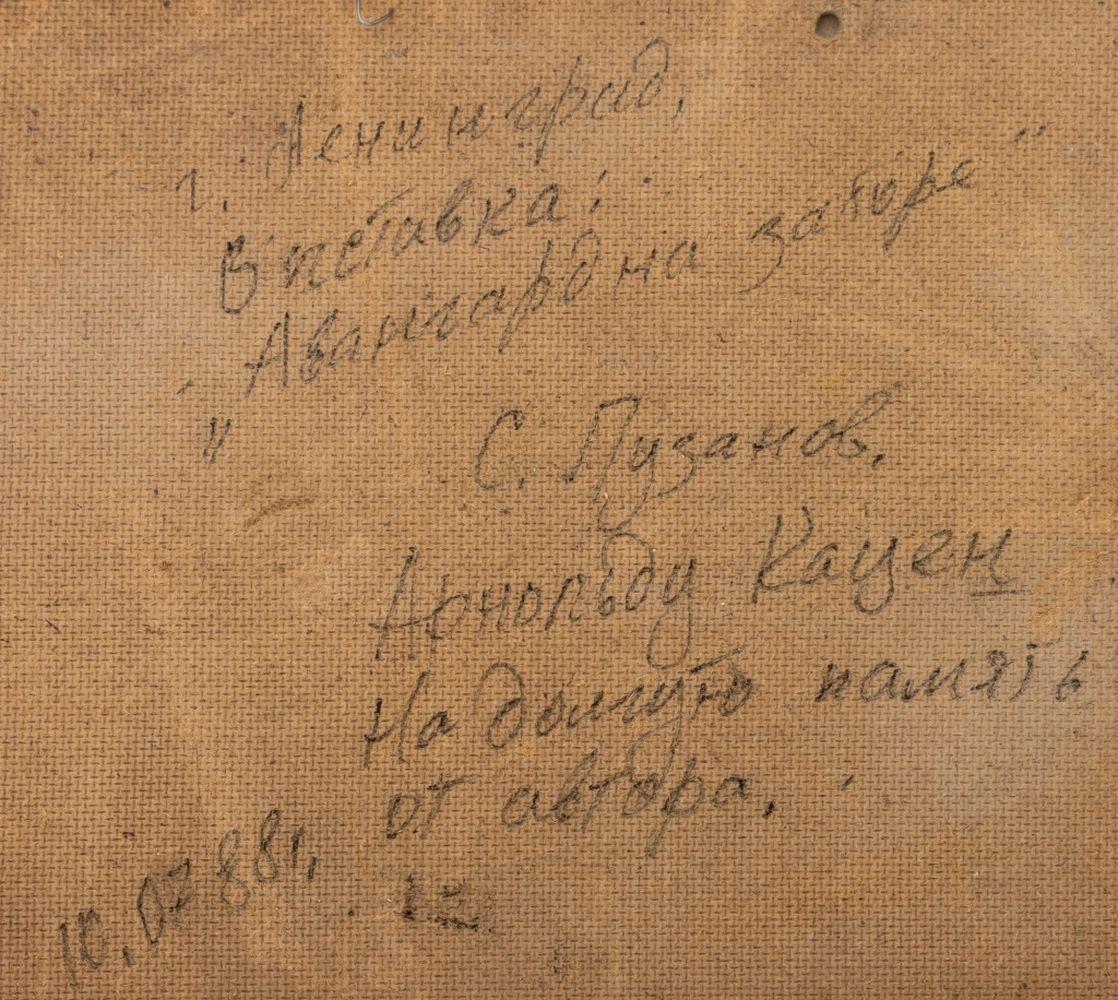 г. Ленинград,
Выставка:
"Авангард на заборе"
С. Пузанов.
Арнольду Кацен
На долгую память
от автора.
10.07 88 г.